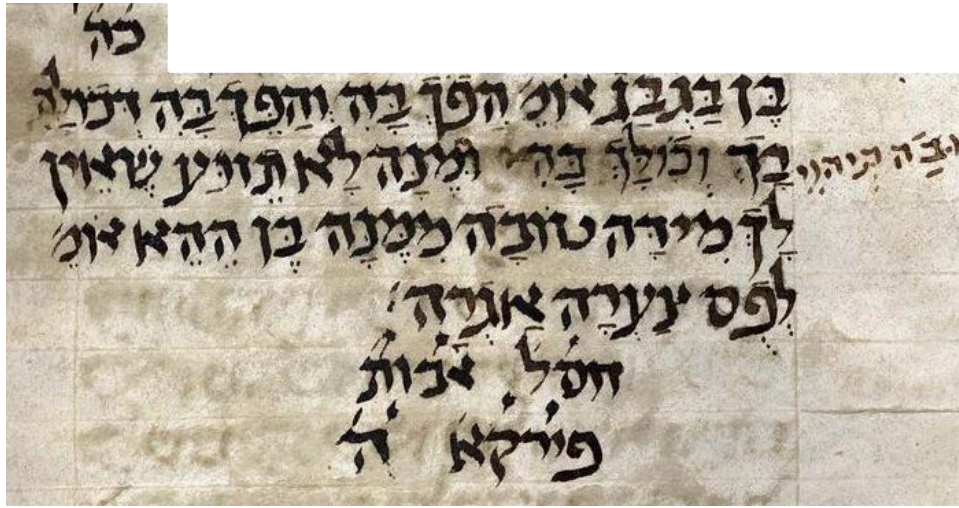 כה
בֶּן בַּגְבַּג אוֹמֵ׳ הֲפָךְ בָּהּ וַהֲפָךְ בָּהּ דְּכוֹלָּהּ
בָּךְ וְכוֹלָּךְ בָּהּ וּמִנָּהּ לָא תְזוּע שֶׁאֵין
וּבָהּ תֵּיהֱוֵי
לָךְ מִידָּה טוֹבָה מִמֶּנָּה בֶּן הֵהֵא אוֹמֵ׳
לְפֻם צַעֲרָה אַגְרָה׳
חסל אבות
פירקא ה׳